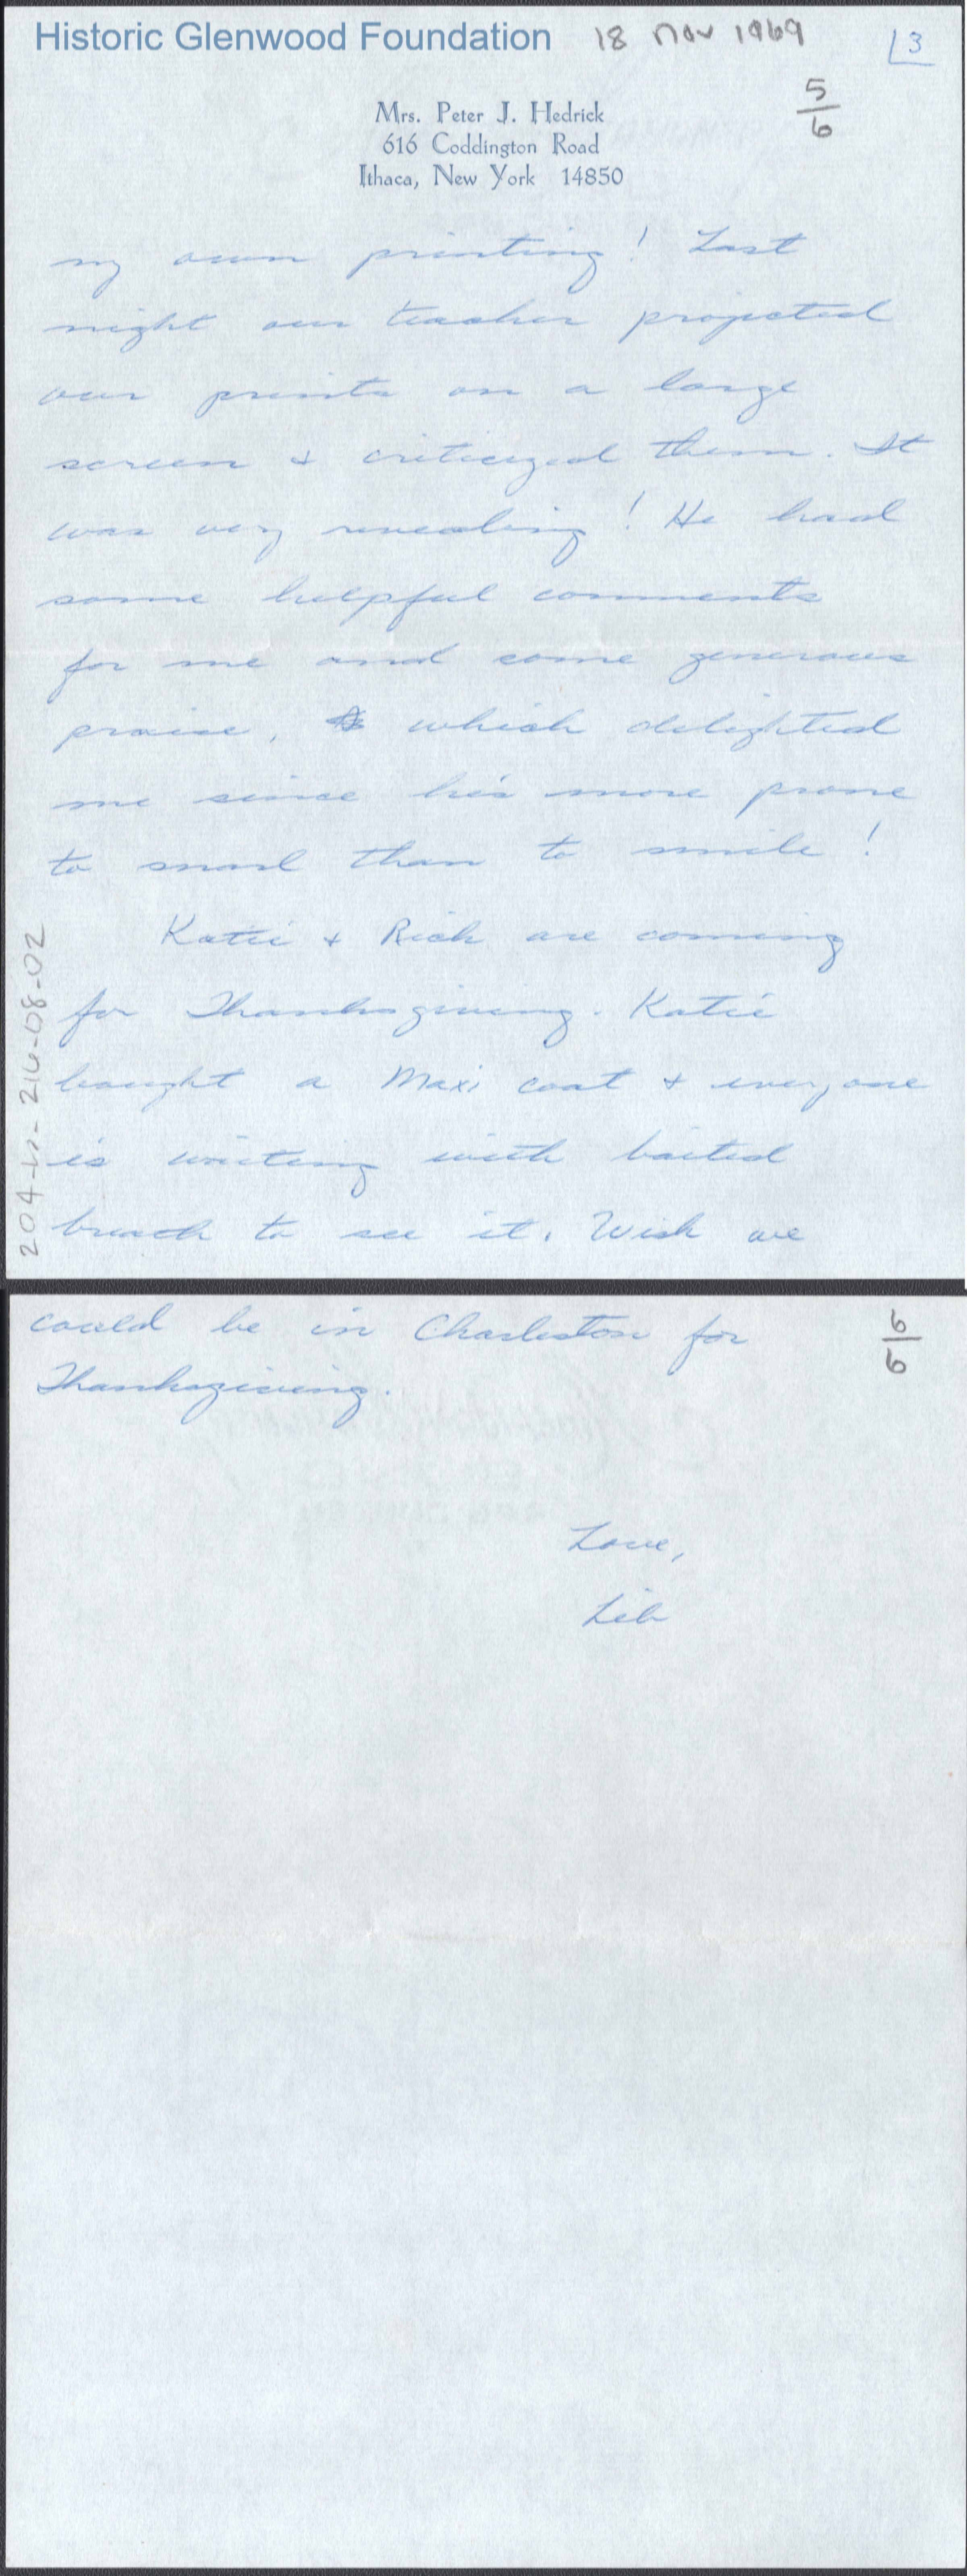 Historic Glenwood Foundation 18 Nov 1969 3
5/6
Mrs. Peter J. Hedrick
616 Coddington Road
Ithaca, New York 14850
my own printing! Last
night our teacher projected
our prints on a large
screen & criticized them. It
was very revealing! He had
some helpful comments
for me and some generous
praise, which delighted
me since he's more prone
to snarl than to smile!
Katie & Rich are coming
for Thanksgiving. Katie
bought a Maxi coat & everyone
is waiting with baited
breath to see it. Wish we
204-H-216-08-02
could be in Charleston for
Thanksgiving.
6/6
Love,
Lib